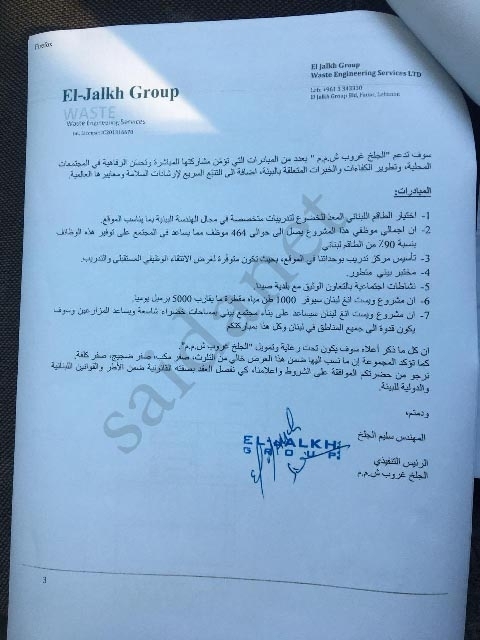 Firefox
El-Jalkh Group
WASTE
Waste Engineering Services
El Jalkh Group
Waste Engineering Services LTD
Leb: +961 3 343330
El Jalkh Group Bld, Fanar, Lebanon
سوف تدعم "الجلخ غروب ش.م.م " بعدد من المبادرات التي تؤمن مشاركتها المباشرة وتحسن الرفاهية في المجتمعات
المحلية، وتطوير الكفاءات والخبرات المتعلقة بالبيئة، اضافة الى التتبع السريع لإرشادات السلامة ومعاييرها العالمية.
المبادرات:
1- اختيار الطاقم اللبناني المعدّ للخضوع لتدريبات متخصصة في مجال الهندسة البيئية بما يناسب الموقع.
2- ان اجمالي موظفي هذا المشروع يصل الى حوالى 464 موظف مما يساعد في المجتمع على توفير هذه الوظائف
بنسبة 90٪ من الطاقم لبناني
3- تأسيس مركز تدريب بوحداتنا في الموقع، بحيث تكون متوفرة لغرض الانتقاء الوظيفي المستقبلي والتدريب.
4- مختبر بيئي متطور.
5- نشاطات اجتماعية بالتعاون الوثيق مع بلدية صيدا.
6- ان مشروع ويست انغ لبنان سيوفر 1000 طن مياه مقطرة ما يقارب 5000 برميل يوميا.
7- ان مشروع ويست انغ لبنان سيساعد على بناء مجتمع بيئي بمساحات خضراء شاسعة ويساعد المزارعين وسوف
يكون قدوة الى جميع المناطق في لبنان وكل هذا بمباركتكم
ان كل ما ذكر أعلاه سوف يكون تحت رعاية وتمويل "الجلخ غروب ش.م.م".
كما تؤكد المجموعة إن ما نسب اليها ضمن هذا العرض خالي من التلوث، صفر مكب، صفر ضجيج، صفر كلفة.
نرجو من حضرتكم الموافقة على الشروط واعلامنا، كي نفصل العقد بصفته القانونية ضمن الأطر والقوانين اللبنانية
والدولية للبيئة.
ودمتم،
المهندس سليم الجلخ
الرئيس التنفيذي
الجلخ غروب ش.م.م
EL-JALKH
GROUP
3